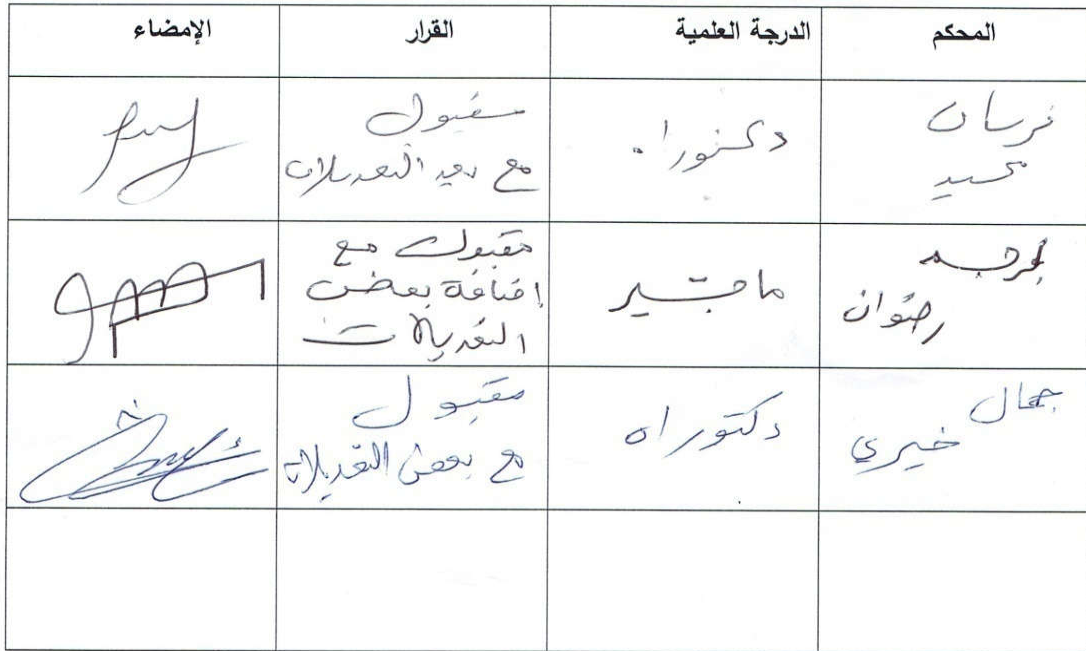 المحكم الدرجة العلمية القرار الإمضاء
فرسان دكتوراه مقبول
مع التعديلات
رضوان ماجستير مقبول مع
إضافة بعض
التعديلات
جمال دكتوراه مقبول
خيري مع بعض التعديلات